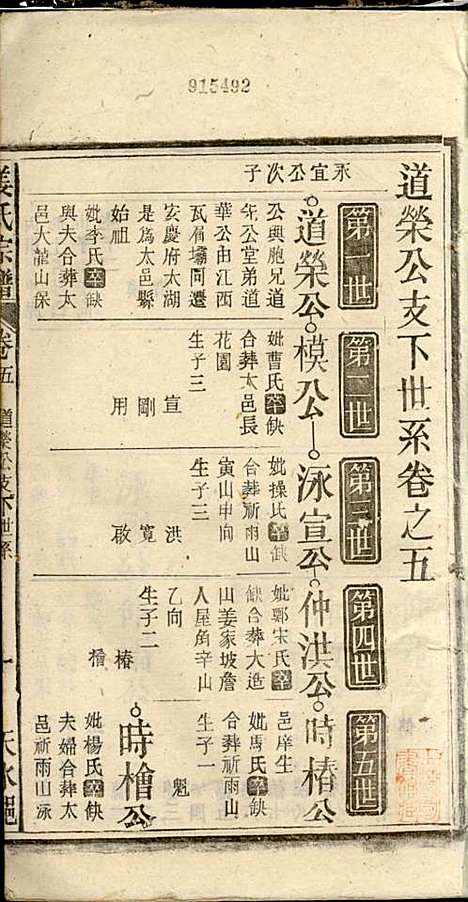 915492
道榮公支下世系卷之五
第一世
第二世
第三世
第四世
第五世
永宜公次子
道榮公
模公
泳宣公
仲洪公
時椿公
公與胞兄道
榮公堂弟道
華公由江西
瓦屑壩同遷
安慶府太湖
是為太邑縣
始祖
妣李氏卒缺
與夫合葬太
邑大龍山保
妣曹氏卒缺
合葬太邑長
花園
生子三
宣
剛
用
妣操氏卒缺
合葬祈雨山
寅山申向
生子三
洪
寬
啟
妣鄭宋氏卒
缺合葬大造
山姜家坡詹
人屋角辛山
乙向
生子二
椿
檜
邑庠生
妣馬氏卒缺
合葬祈雨山
生子一
魁
時檜公
妣楊氏卒缺
夫婦合葬太
邑祈雨山泳
姜氏宗譜
卷五
道榮公支下世系
一
天水郡